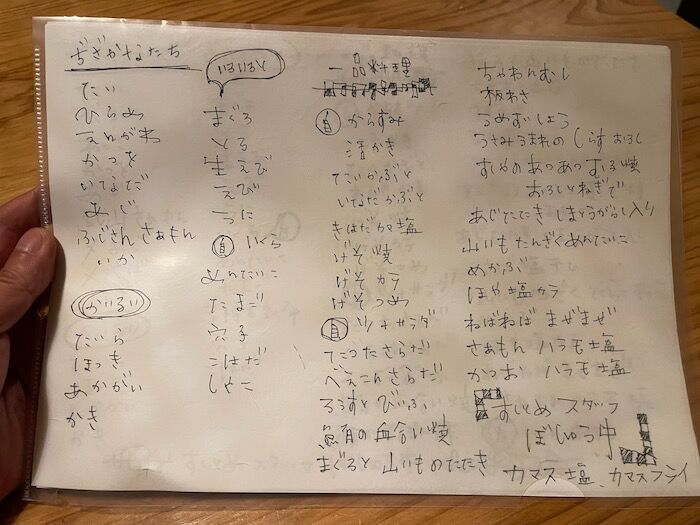 ぢざかなたち
たい
ひらめ
えんがわ
かつを
いなだ
あじ
ふじさん さぁもん
いか
かいるい
たいら
ほっき
あかがい
かき
いろいろ
まぐろ
とろ
生えび
えび
うに
自 いくら
めんたいこ
たまご
穴子
こはだ
しゃこ
一品料理
自 からすみ
酒かき
たいかぶと
いなだかぶと
きはだカマ塩
げそ焼
げそカラ
げそつめ
自 ツナサラダ
たこさらだ
べえこんさらだ
ろうすとびいふ
血合い焼
まぐろと山いものたたき
ちゃわんむし
板わさ
うめずいしょう
うさみうまれのしらすおろし
すしやのあつあつするめ焼
おろしとねぎで
あじたたき しまとうがらし入り
山いもたんざくめんたいこ
めかぶ
ほや塩カラ
ねばねば まぜまぜ
さぁもん ハラモ塩
かつお ハラモ塩
すしとめ スタッフ
ぼしゅう中
カマス塩、カマスフライ